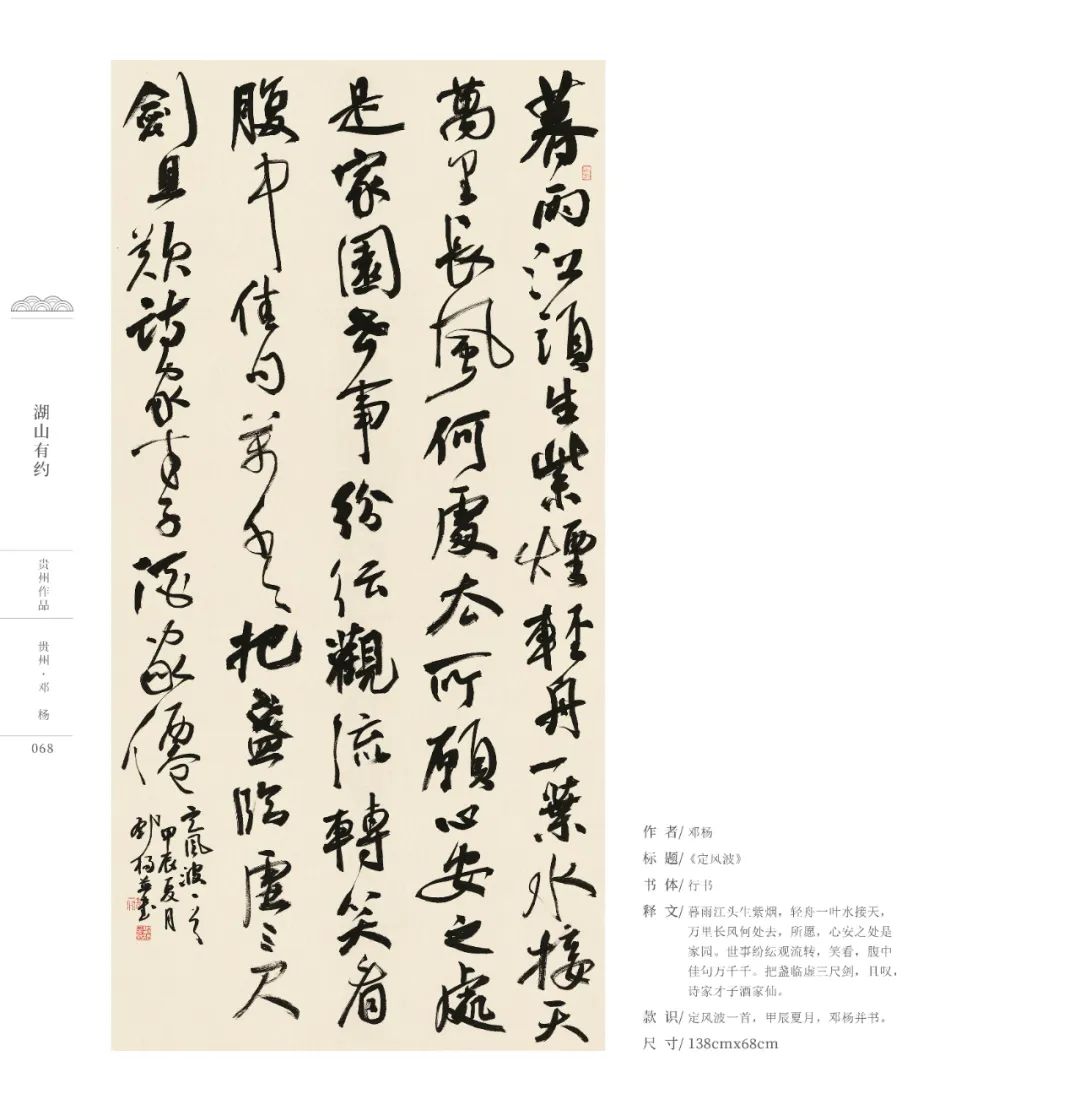 暮雨江頭生紫煙輕舟一葉水接天
萬里長風何處去所願心安之處
是家園世事紛紜觀流轉笑看
腹中佳句萬千千把盞臨虛三尺
劍且歎詩家才子酒家僊
定風波一首
甲辰夏月
鄧楊并書
湖山有约
贵州作品
贵州·邓 杨
068
作 者/ 邓杨
标 题/《定风波》
书 体/ 行书
释 文/ 暮雨江头生紫烟，轻舟一叶水接天，
万里长风何处去，所愿，心安之处是
家园。世事纷纭观流转，笑看，腹中
佳句万千千。把盏临虚三尺剑，且叹，
诗家才子酒家仙。
款 识/ 定风波一首，甲辰夏月，邓杨并书。
尺 寸/ 138cmx68cm